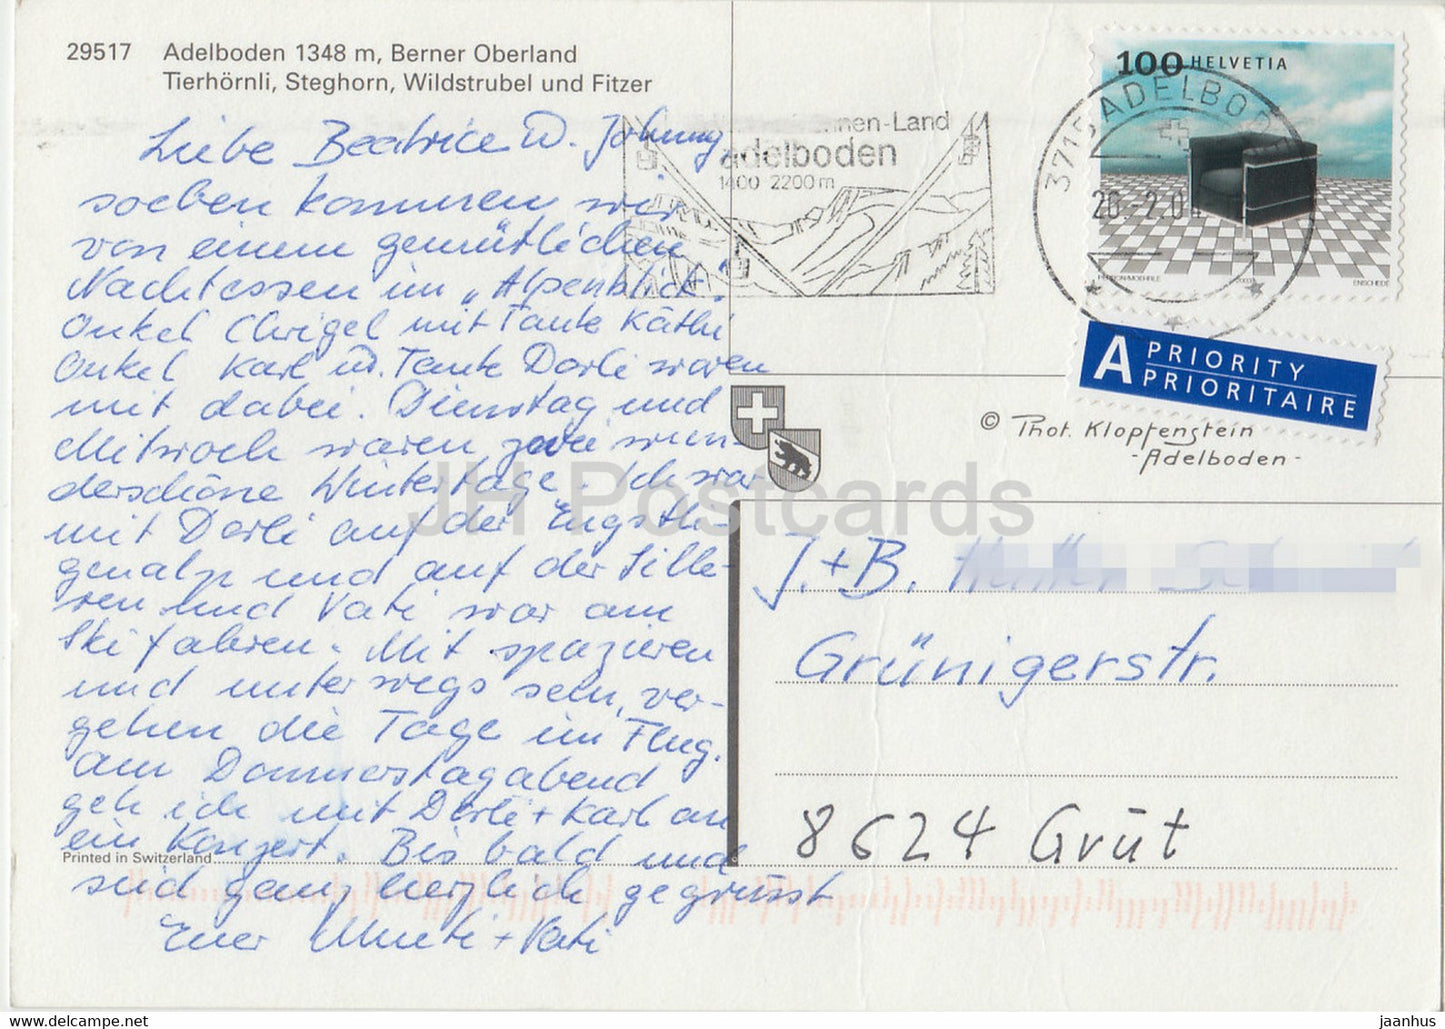 29517 Adelboden 1348 m, Berner Oberland
Tierhörnli, Steghorn, Wildstrubel und Fitzer
Liebe Beatrice u. Johnny,
soeben kommen wir
von einem gemütlichen
Nachtessen im „Alpenblick".
Onkel Chrigel mit Tante Käthi
Onkel Karl u. Tante Dorli waren
mit dabei. Dienstag und
Mittwoch waren zwei wun-
derschöne Wintertage. Ich war
mit Dorli auf der Engstli-
genalp und auf der Sille-
ren und Vati war am
Skifahren. Mit spazieren
und unterwegs sein, ver-
gehen die Tage im Flug.
Am Donnerstagabend
geh ich mit Dorli + Karl an
ein Konzert. Bis bald und
seid ganz herzlich gegrüsst
Euer Mueti + Vati
Printed in Switzerland
nen-Land
adelboden
1400 2200 m
3715 ADELBOD
26.-2.04
100 HELVETIA
ENSCHEDE
A PRIORITY
PRIORITAIRE
© Phot. Klopfenstein
- Adelboden -
J. + B.
Grünigerstr.
8624 Grüt
JH Postcards
https://www.jhpostcards.com
jaanhus